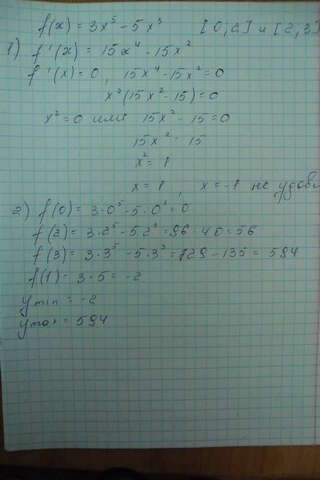 f(x) = 3x⁵ - 5x³ [0;2] и [2;3]
1) f'(x) = 15x⁴ - 15x²
f'(x) = 0, 15x⁴ - 15x² = 0
x²(15x² - 15) = 0
x² = 0 или 15x² - 15 = 0
15x² = 15
x² = 1
x = 1, x = -1 не удов
2) f(0) = 3·0⁵ - 5·0³ = 0
f(2) = 3·2⁵ - 5·2³ = 96 - 40 = 56
f(3) = 3·3⁵ - 5·3³ = 729 - 135 = 594
f(1) = 3 - 5 = -2
y min = -2
y max = 594